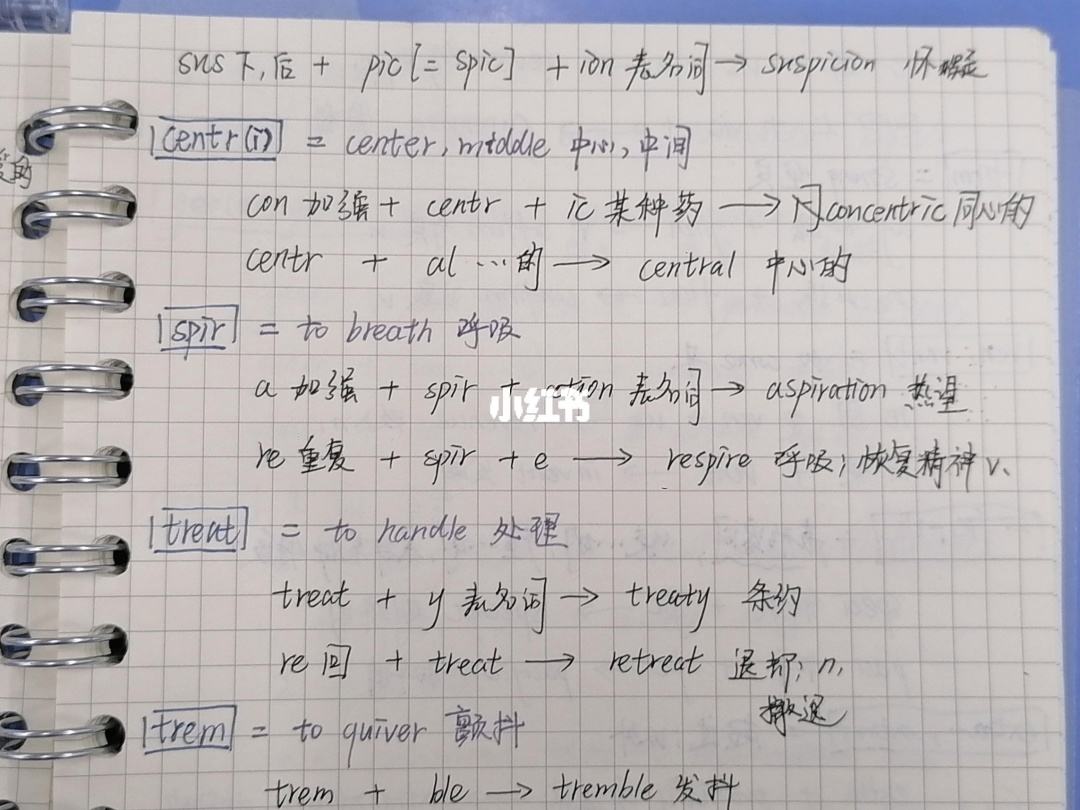 sus 下,后 + pic [= spic] + ion 表名词 → suspicion 怀疑
centr(i) = center, middle 中心,中间
con 加强 + centr + ic 某种药 → concentric 同心的
centr + al …的 → central 中心的
spir = to breath 呼吸
a 加强 + spir + ation 表名词 → aspiration 热望
小红书
re 重复 + spir + e → respire 呼吸; 恢复精神 v.
treat = to handle 处理
treat + y 表名词 → treaty 条约
re 回 + treat → retreat 退却; n.
撤退
trem = to quiver 颤抖
trem + ble → tremble 发抖